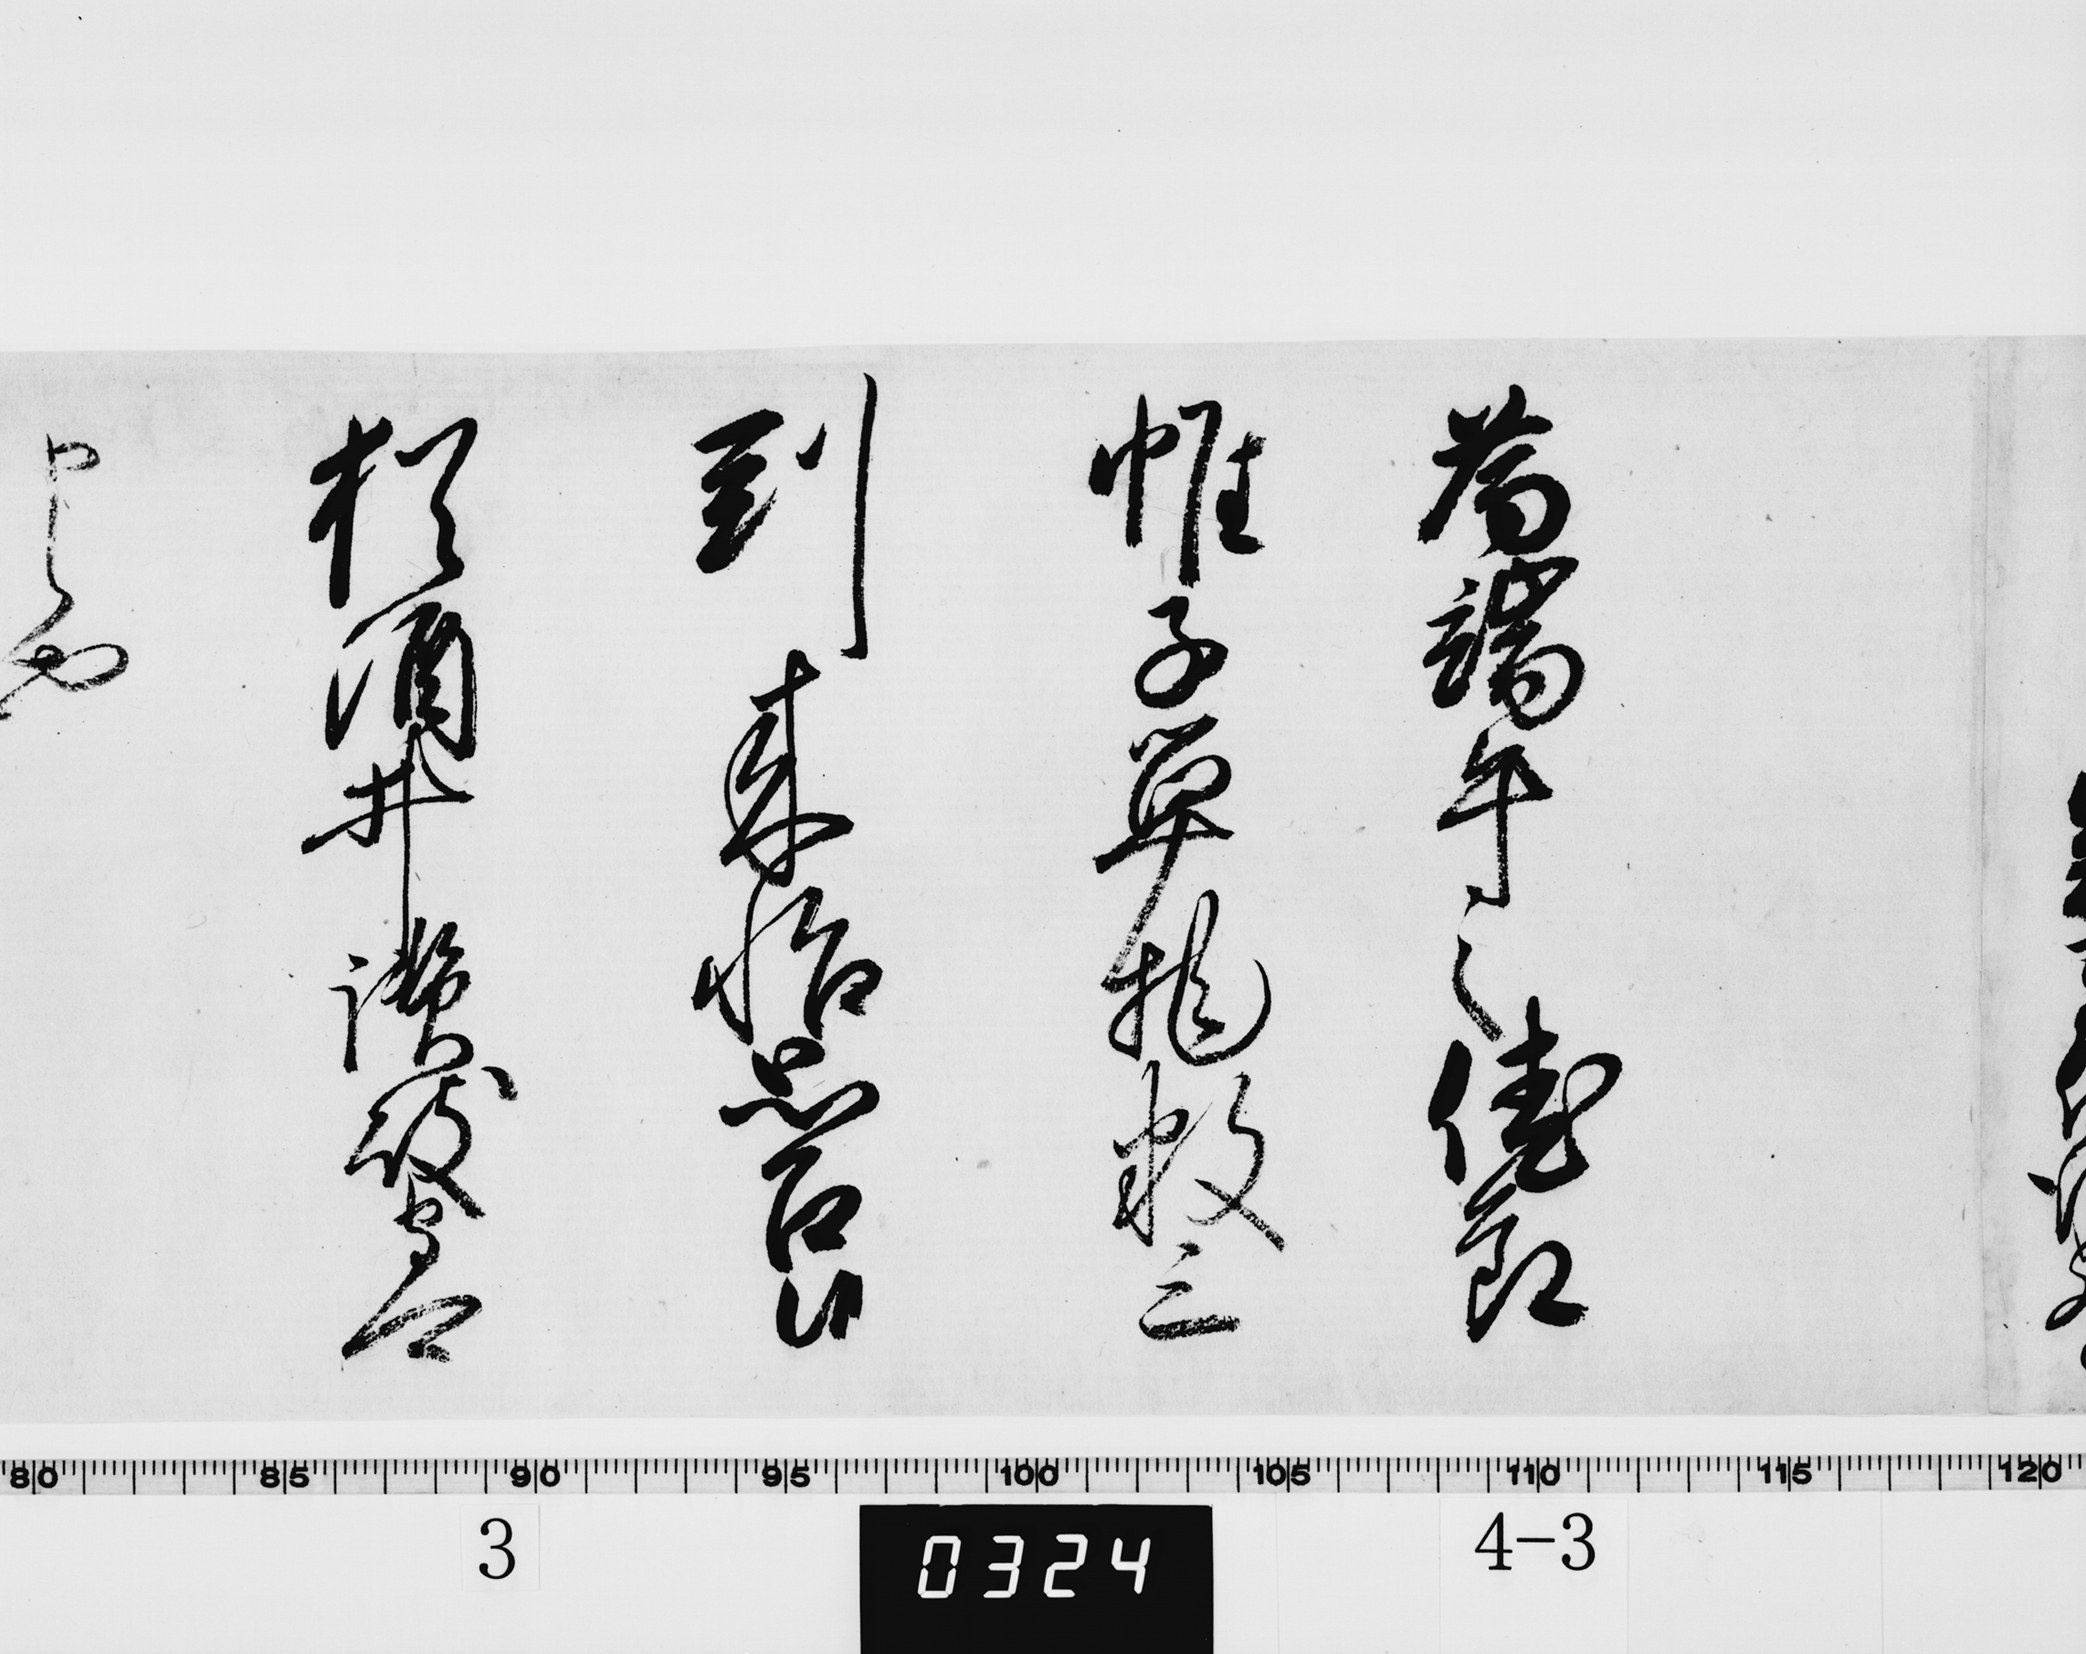 為端午之佳節
帷子単物数三
到来怡思召候
猶酒井讃岐守可
申也
80 85 90 95 100 105 110 115 120
3 0324 4-3